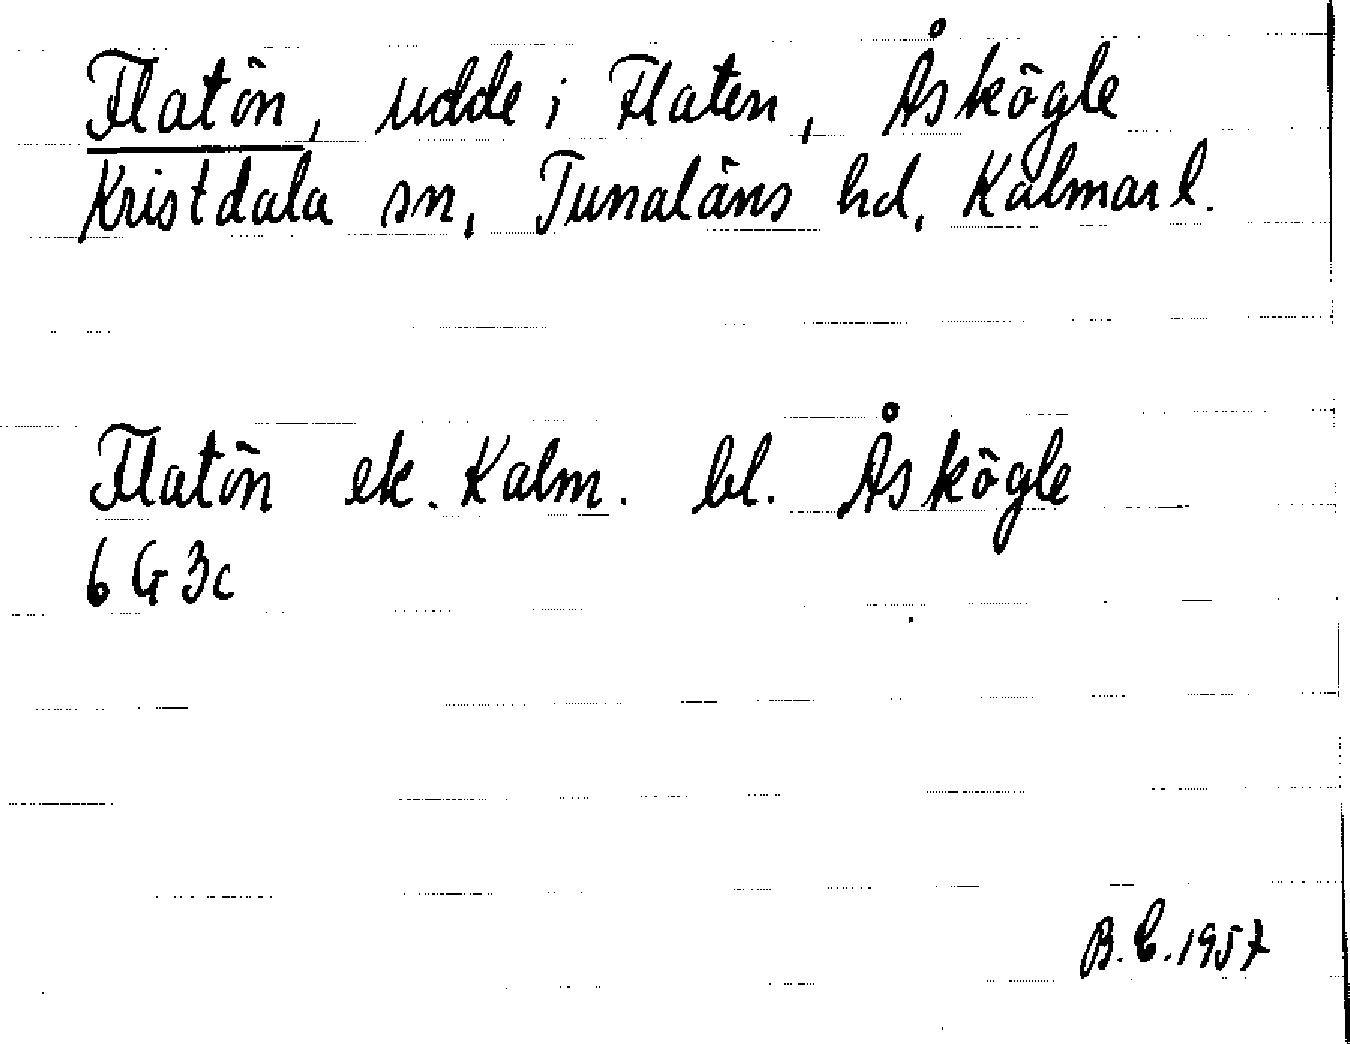 Flatön, udde i Flaten, Åskögle
Kristdala sn, Tunaläns hd, Kalmar l.
Flatön ek. Kalm. bl. Åskögle
6 G 3c
B.E. 1957